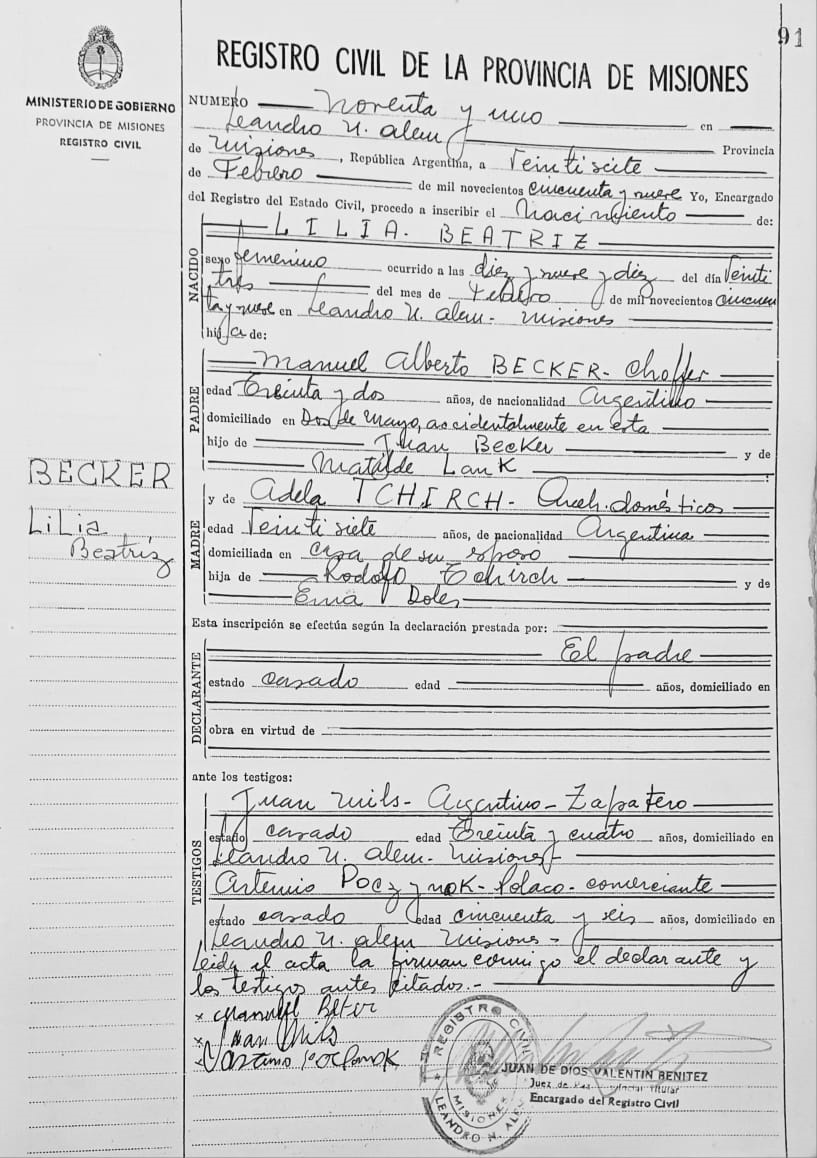 91
REGISTRO CIVIL DE LA PROVINCIA DE MISIONES
MINISTERIO DE GOBIERNO
PROVINCIA DE MISIONES
REGISTRO CIVIL
NUMERO Noventa y uno en
Leandro N. Alem Provincia
de Misiones, República Argentina, a Veintisiete
de Febrero de mil novecientos cincuenta y nueve Yo, Encargado
del Registro del Estado Civil, procedo a inscribir el Nacimiento de:
NACIDO
LILIA. BEATRIZ
sexo femenino ocurrido a las diez y nueve y diez del día Veinti
tres del mes de Febrero de mil novecientos cincuen
ta y nueve en Leandro N. Alem - Misiones
hija de:
PADRE
Manuel Alberto BECKER - Choffer
edad Treinta y dos años, de nacionalidad Argentino
domiciliado en Dos de Mayo, accidentalmente en esta
hijo de Juan Becker y de
Matilde Lank
BECKER
Lilia
Beatriz
MADRE
y de Adela TCHIRCH - Queh. domésticos
edad Veintisiete años, de nacionalidad Argentina
domiciliada en casa de su esposo
hija de Rodolfo Tchirch y de
Ema Doles
Esta inscripción se efectúa según la declaración prestada por:
DECLARANTE
El padre
estado casado edad años, domiciliado en
obra en virtud de
ante los testigos:
TESTIGOS
Juan Mils - Argentino - Zapatero
estado casado edad Treinta y cuatro años, domiciliado en
Leandro N. Alem - Misiones
Artemio - Polaco - comerciante
estado casado edad cincuenta y seis años, domiciliado en
Leandro N. Alem Misiones -
Leida el acta la firman conmigo el declarante y
los testigos antes citados.-
x Manuel
x Juan Mils
x
REGISTRO CIVIL
MISIONES
LEANDRO N. ALEM
JUAN DE DIOS VALENTIN BENITEZ
Juez de Paz Titular
Encargado del Registro Civil